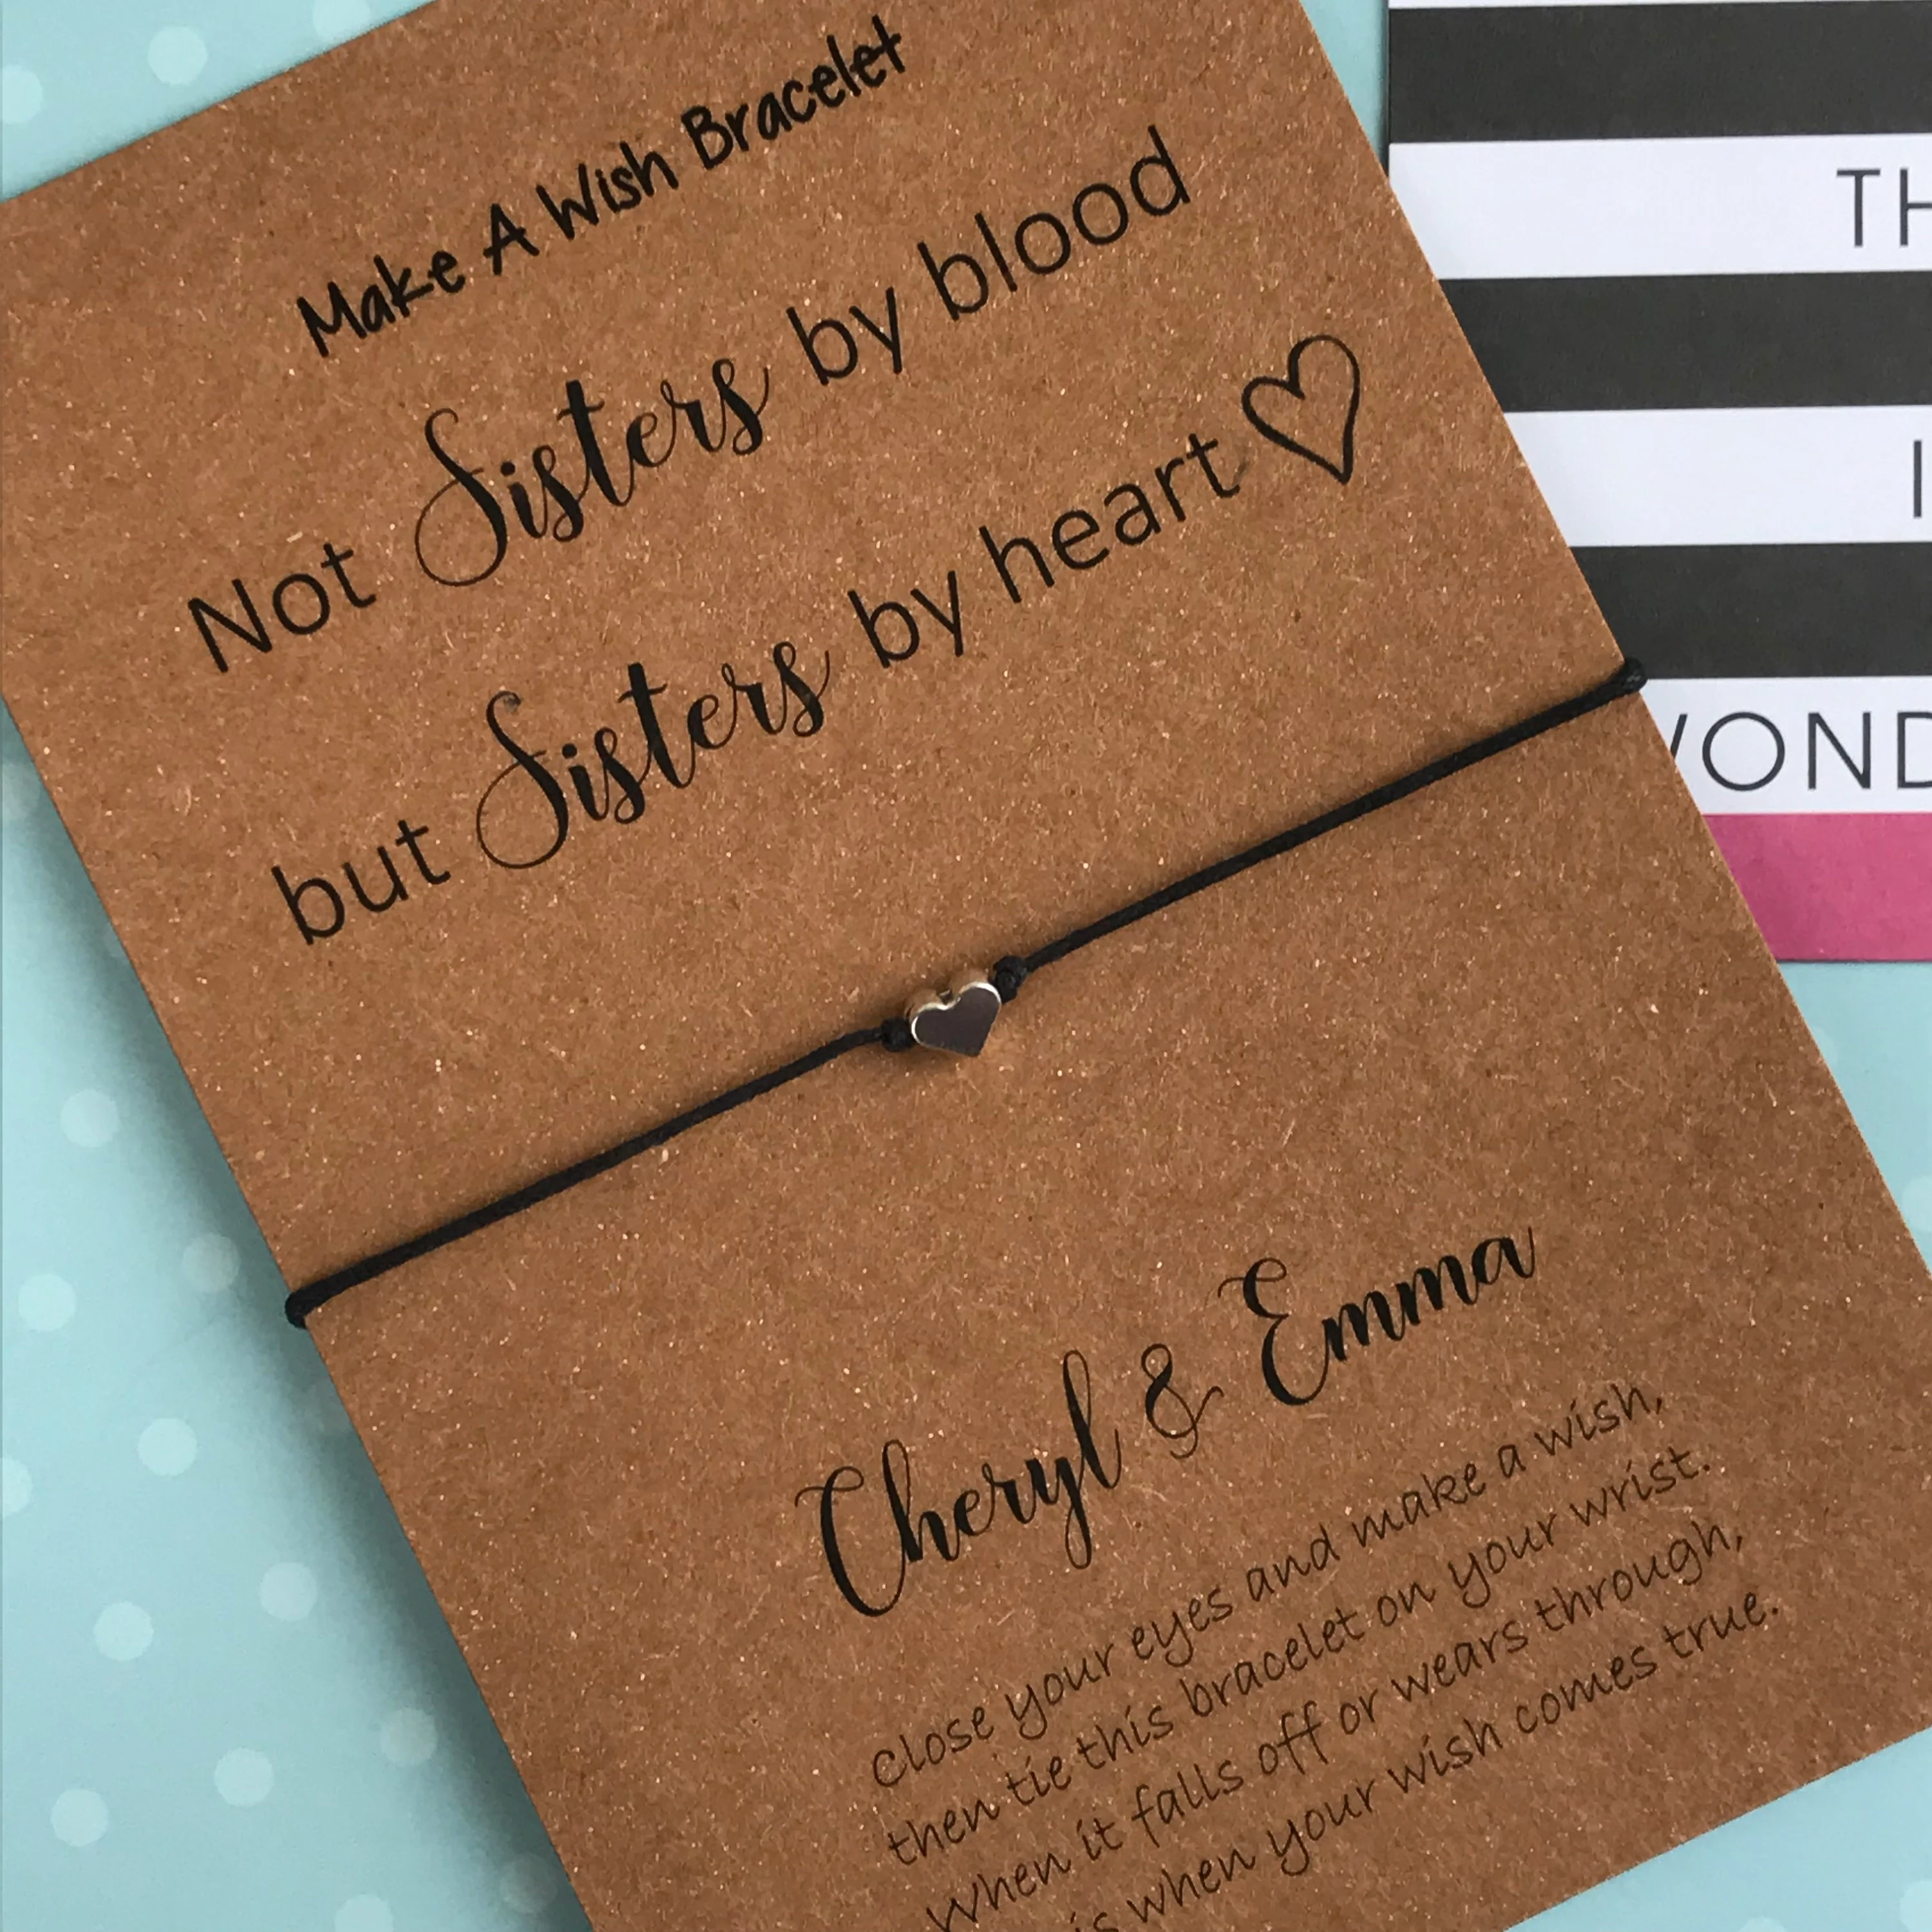 Make A Wish Bracelet
Not Sisters by blood
but Sisters by heart
Cheryl & Emma
close your eyes and make a wish,
then tie this bracelet on your wrist.
When it falls off or wears through,
is when your wish comes true.
TH
I
WOND